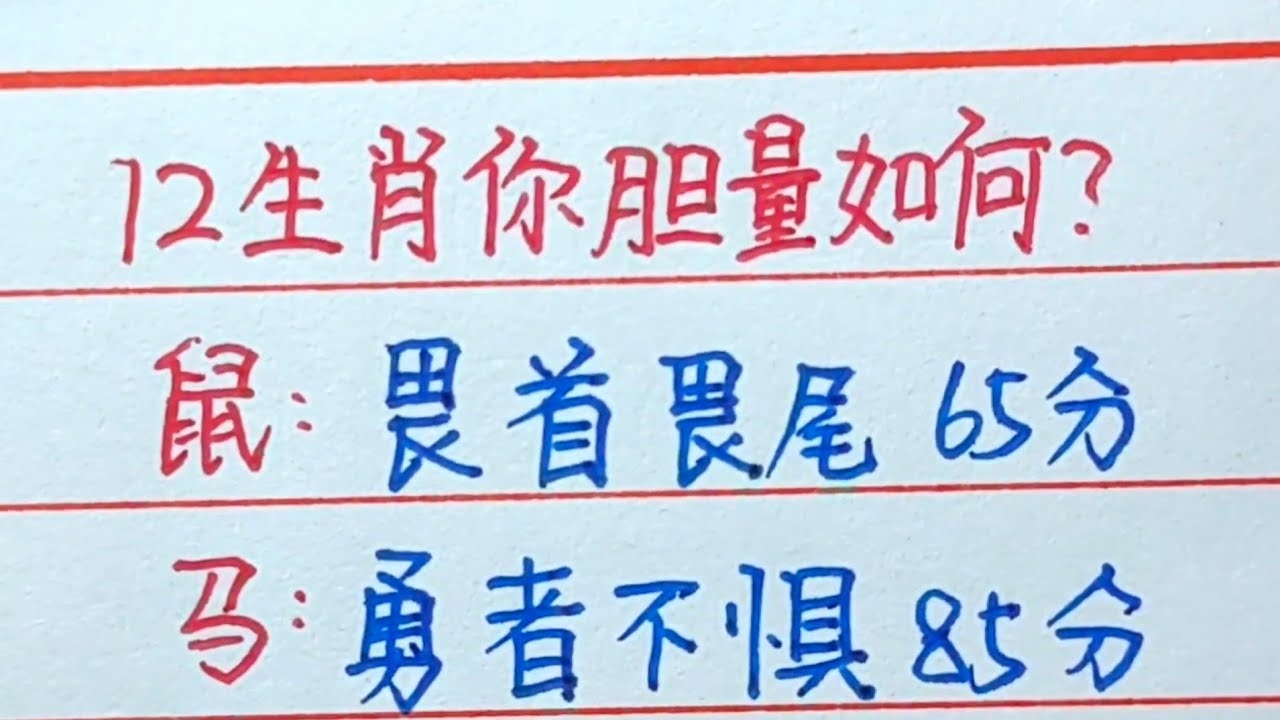 12生肖你胆量如何?
鼠: 畏首畏尾 65分
马: 勇者不惧 85分